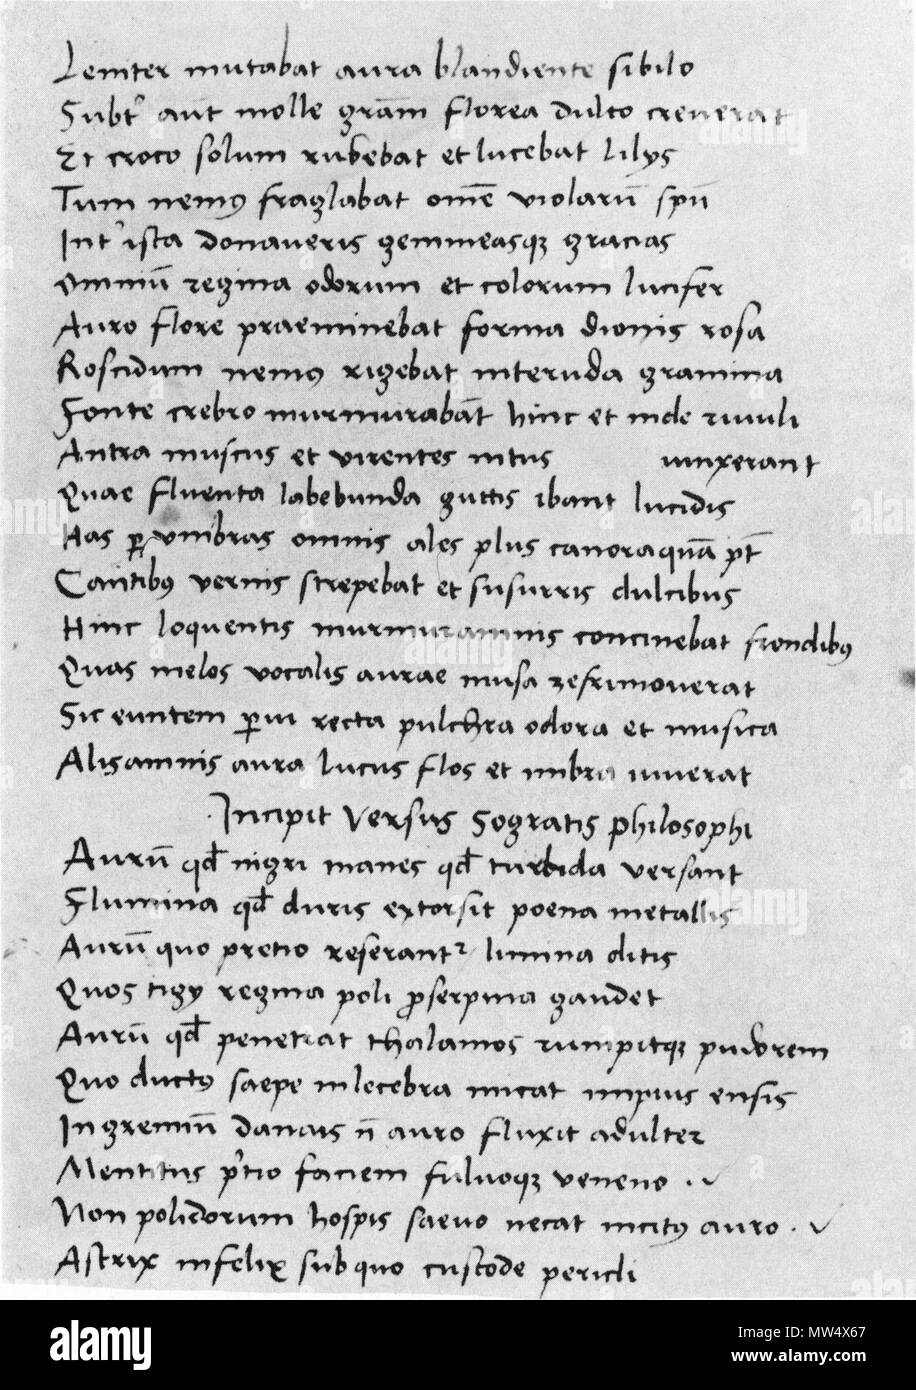 Leniter mutabat aura blandiente sibilo
Subt' aūt molle grām florea dulto creuerat
Et croco solum rubebat et lucebat lilys
Tum nemꝰ fraglabat om̄e violarū spū
Int' ista donaueris gemmeasqꝫ gracias
Omniū regina odorum et colorum lucifer
Auro flore praeminebat forma dionis rosa
Roscidum nemꝰ rigebat inter uda gramina
Fonte crebro murmurabāt hinc et inde riuuli
Antra muscus et virentes intus uinxerant
Quae fluenta labebunda guttis ibant lucidis
Has ꝑ vmbras omnis ales plus canora quā pt̄
Cantibꝰ vernis strepebat et susurris dulcibus
Hinc loquentis murmur amnis concinebat frondibꝰ
Quas melos vocalis aurae musa zefri mouerat
Sic euntem ꝑ ui recta pulchra odora et musica
Alis amnis aura lucus flos et umbra iuuerat
Incipit Versus Sogratis philosophi
Aurū qd̄ nigri manes qd̄ turbida versant
Flumina qd̄ duris extorsit poena metallis
Aurū quo pretio reserant² lumina ditis
Quos tigy regina poli ꝓserpina gaudet
Aurū qd̄ penetrat thalamos rumpitqꝫ pudorem
Quo ductꝰ saepe inlecebra micat impius ensis
In gremiū danais n̄ auro fluxit adulter
Mentitus p'tio faciem fuluoqꝫ veneno
Non polidorum hospis saeuo necat incitꝰ auro
Astrix infelix sub quo custode pericli
alamy
Image ID: MW4X67
www.alamy.com